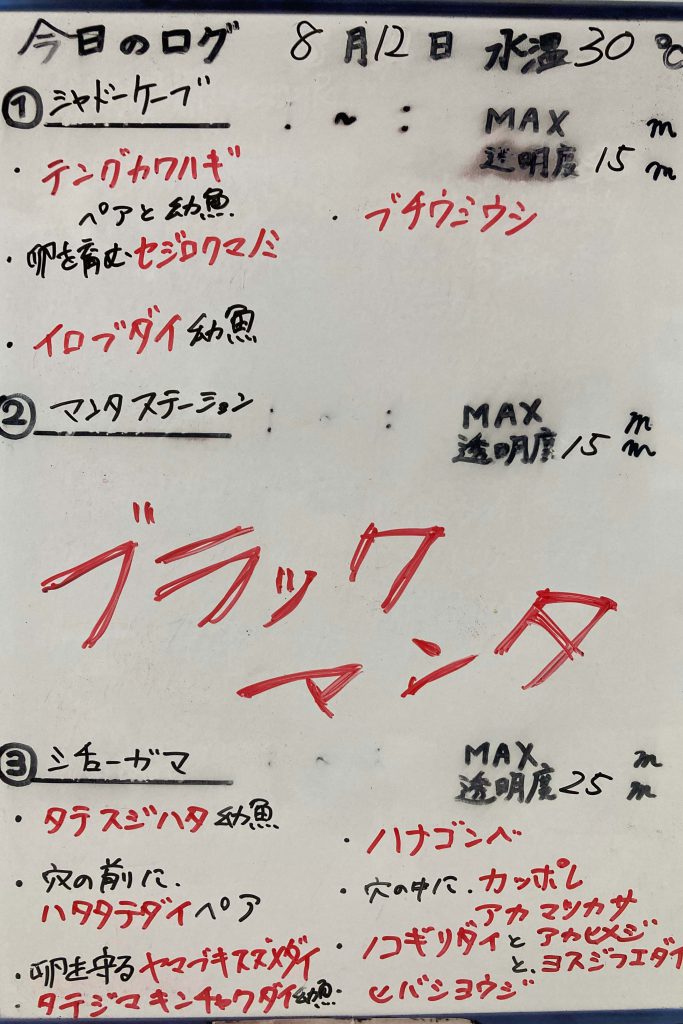 今日のログ 8月12日 水温30℃
① シャドーケーブ . ~ : MAX m
透明度 15 m
・テングカワハギ
ペアと幼魚
・ブチウミウシ
・卵を育むセジロクマノミ
・イロブダイ幼魚
② マンタステーション : ~ : MAX m
透明度 15 m
ブラック
マンタ
③ シチューガマ MAX m
透明度 25 m
・タテスジハタ幼魚
・穴の前に、
ハタタテダイペア
・卵を守るヤマブキスズメダイ
・タテジマキンチャクダイ幼魚
・ハナゴンベ
・穴の中に、カッポレ
アカマツカサ
・ノコギリダイとアカヒメジ
と、ヨスジフエダイ
・ヒバシヨウジ